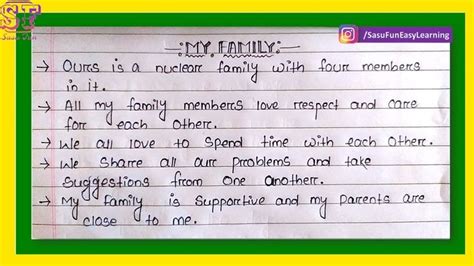 ST
Sasu Fun
/SasuFunEasyLearning
:MY FAMILY:
→ Ours is a nuclear family with four members
in it.
→ All my family members love respect and care
for each other.
→ We all love to spend time with each other.
→ We share all our problems and take
suggestions from one another.
→ My family is supportive and my parents are
close to me.